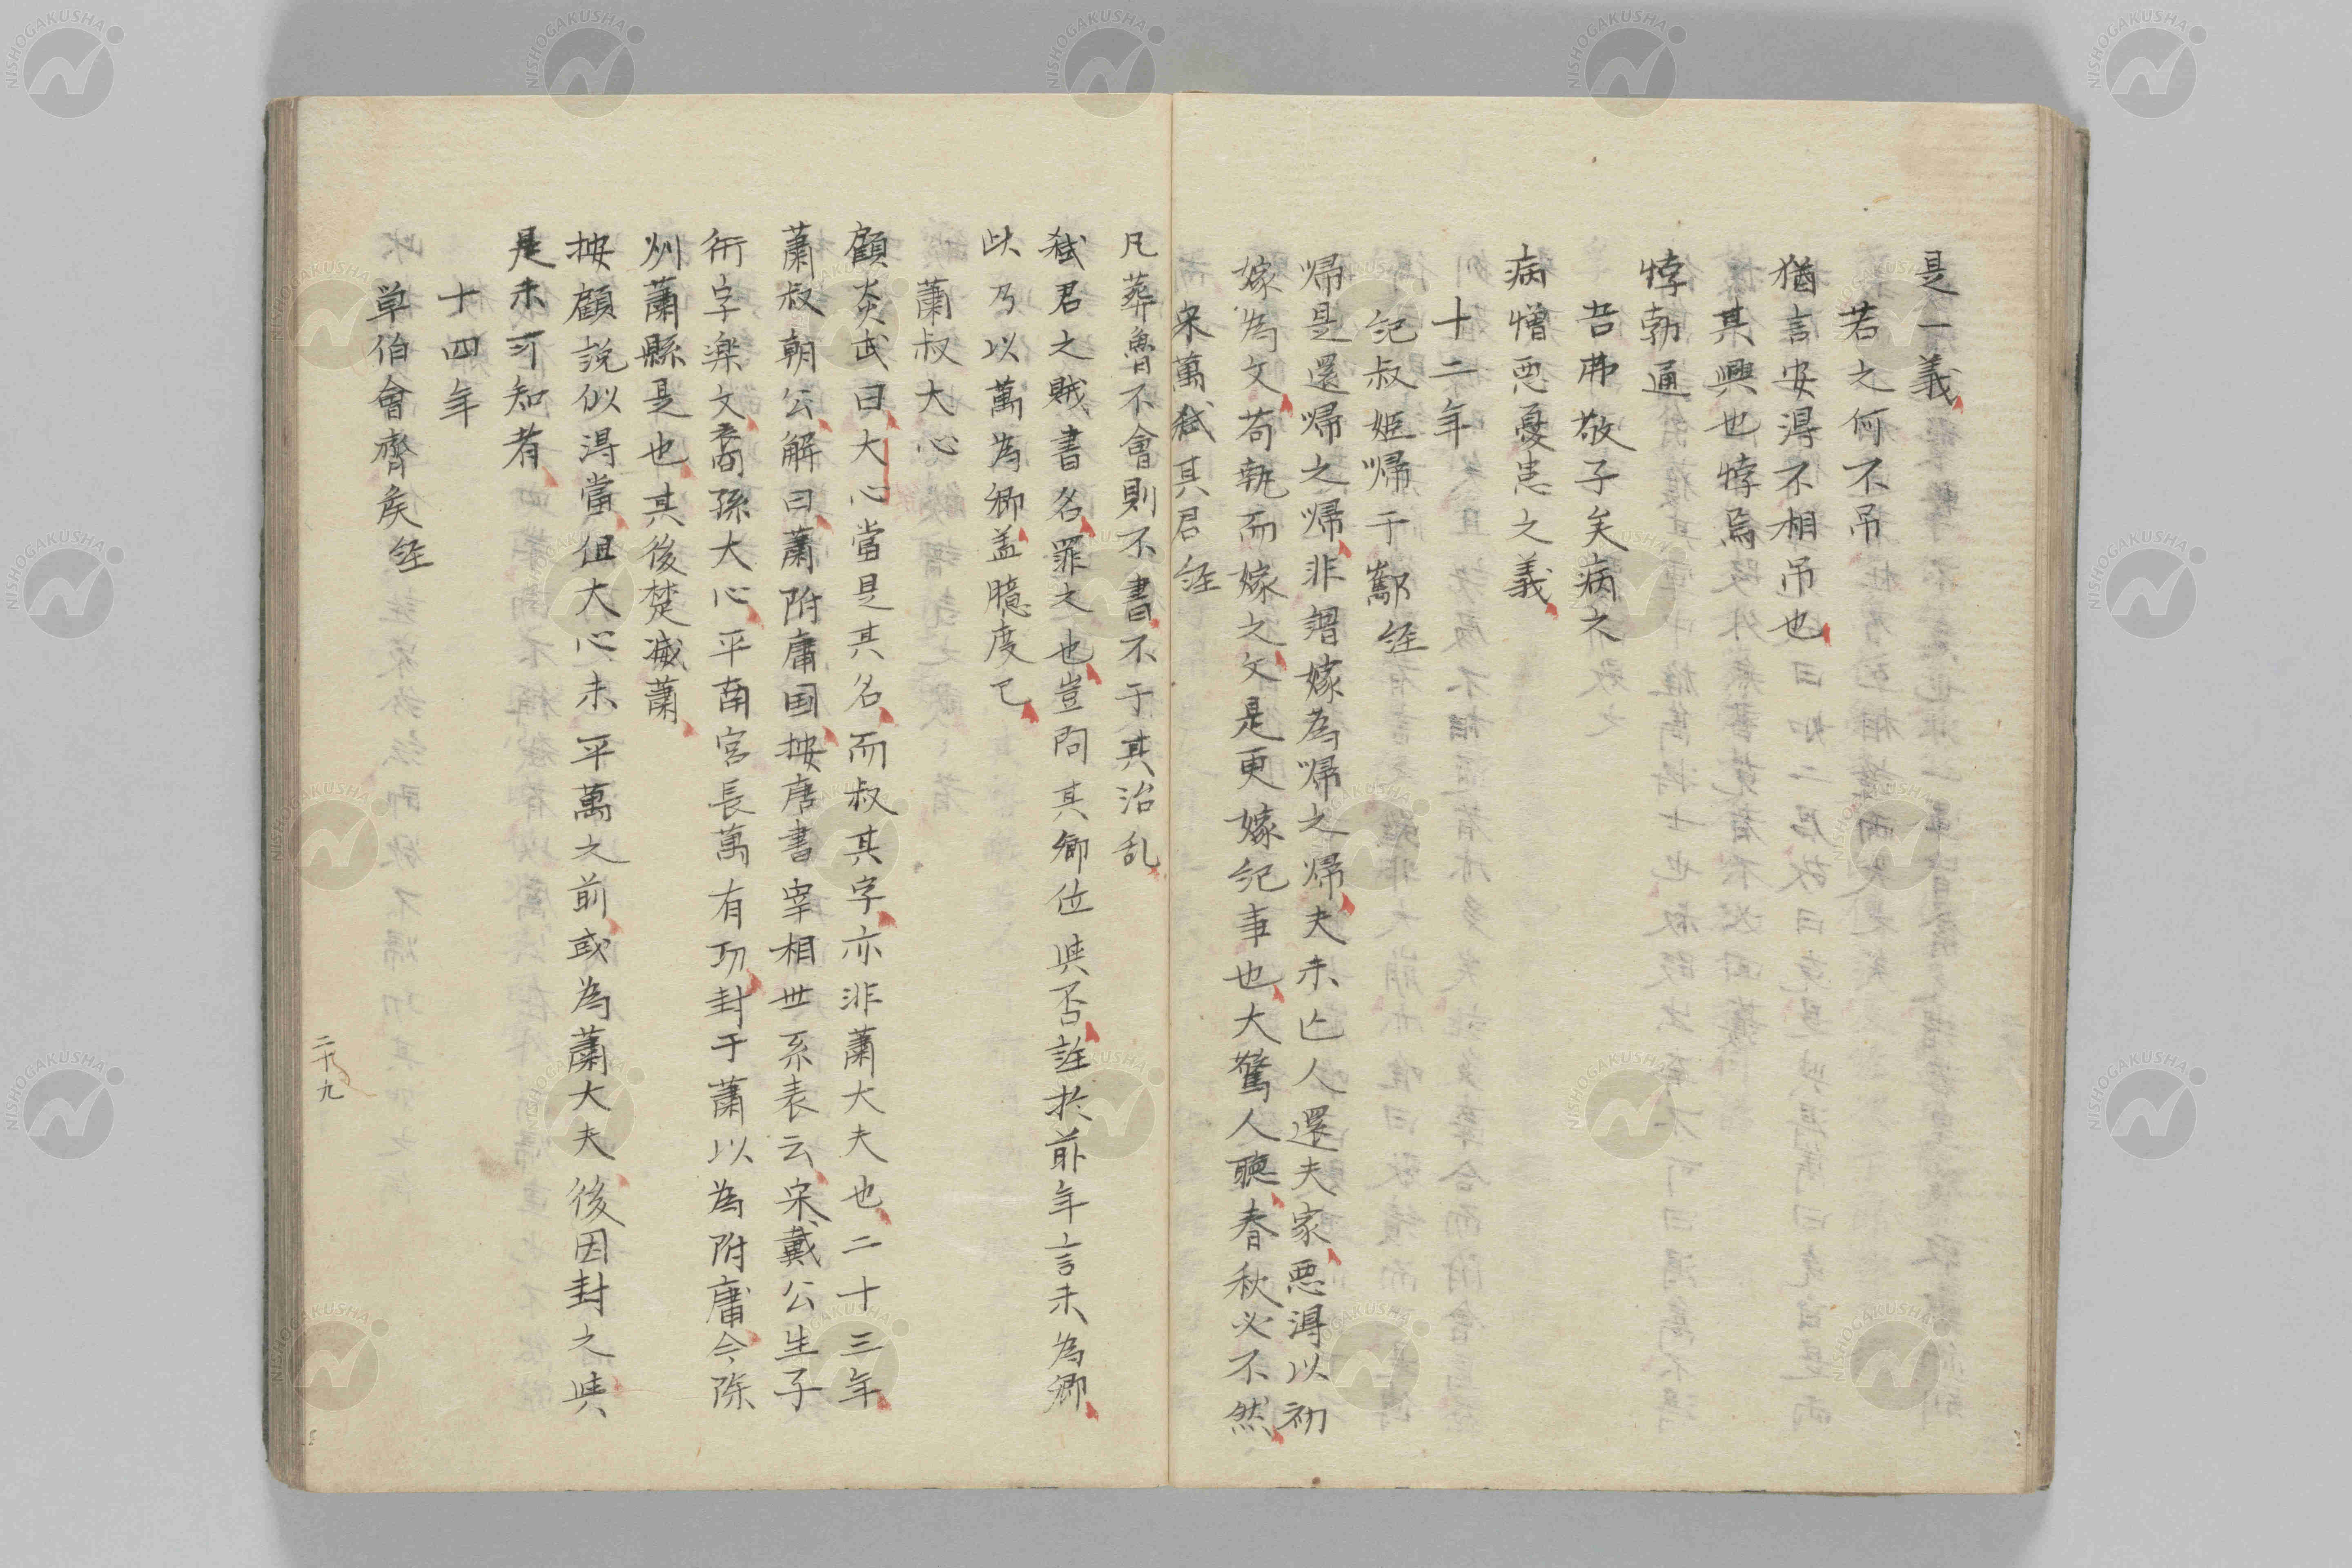 是一義
若之何不吊
猶言安得不相吊也
其興也悖焉
悖勃通
吾弗敬子矣病之
病憎悪憂患之義
十二年
紀叔姫帰于酅経
帰是還帰之帰非謂嫁為帰之帰夫未亡人還夫家悪得以初
嫁為文苟執而嫁之文是更嫁紀事也大驚人聴春秋必不然
宋萬弑其君経
凡葬魯不會則不書不于其治乱
弑君之賊書名罪之也豈問其卿位與否註於前年言未為卿
此乃以萬為卿盖臆度已
蕭叔大心
顧炎武曰大心當是其名而叔其字亦非蕭大夫也二十三年
蕭叔朝公解曰蕭附庸国按唐書宰相世系表云宋戴公生子
衎字楽父裔孫大心平南宮長萬有功封于蕭以為附庸今除
州蕭縣是也其後楚滅蕭
按顧説似得當但大心未平萬之前或為蕭大夫後因封之與
是未可知者
十四年
単伯會齊矦経
二十九
NISHOGAKUSHA